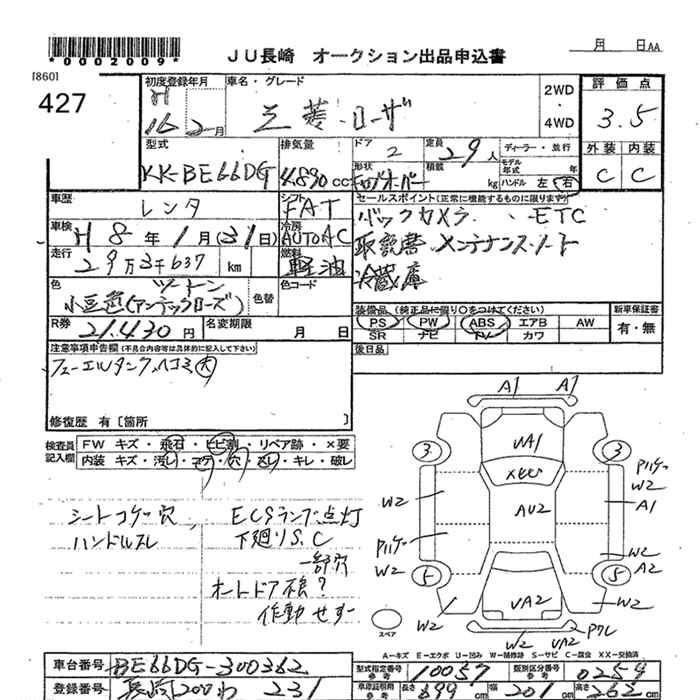 *0002009*
JU長崎 オークション出品申込書
月 日 AA
[860]
427
初度登録年月
H
16 2月
車名・グレード
三菱・ローザ
2WD
・
4WD
評価点
3.5
外装 内装
C C
型式
KK-BE66DG
排気量
4890 cc
ドア
2
定員
29人
ディーラー・並行
モデル年式 年
形状
積載 kg
ハンドル 左 右
車歴
レンタ
シフト
FAT
車検
H 8年1月(31日)
冷房
AUTOAC
走行
29万3千637 km
燃料
軽油
色
ツートン
小豆色(アンテックローズ)
色替
色コード
R券
21,430円
名変期限 月 日
セールスポイント(正常に機能するものに限ります)
バックカメラ、ETC
取説書 メンテナンスノート
冷蔵庫
装備品(純正品に限り○をつけてください)
PS PW ABS エアB AW
SR ナビ TV カワ
新車保証書
有・無
後日品
注意事項申告欄(不具合内容等は具体的に記入して下さい)
フューエルタンクヘコミ大
修復歴 有[箇所 ]
検査員記入欄
FW キズ・飛石・ヒビ割・リペア跡・×要
内装 キズ・汚レ・コゲ・穴・スレ・キレ・破レ
シートコゲ穴
ハンドルスレ
ECSランプ点灯
下廻りS.C
一部穴
オートドア損?
作動せず
A1 A1
3 3
UA1
W2
AU2
W2
A1
W2
W2
A2
5 5
UA2
W2
W2
W2
UA2
スペア
A-キズ E-エクボ U-凹み W-補修跡 S-サビ C-腐食 XX-交換済
車台番号
BE66DG-300362
登録番号
長崎200わ 231
型式指定番号 参考
10057
類別区分番号 参考
0254
車検証引用 参考
長さ 699 cm
幅 201 cm
高さ 262 cm